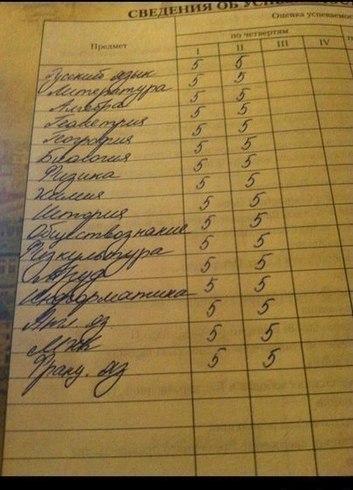 СВЕДЕНИЯ ОБ
Оценка успеваемос
Предмет
по четвертям
I II III IV
Русский язык 5 5
Литература 5 5
Алгебра 5 5
Геометрия 5 5
География 5 5
Биология 5 5
Физика 5 5
Химия 5 5
История 5 5
Обществознание 5 5
Физкультура 5 5
Труд 5 5
Информатика 5 5
Анг. яз 5 5
МХК 5 5
Франц. яз 5 5